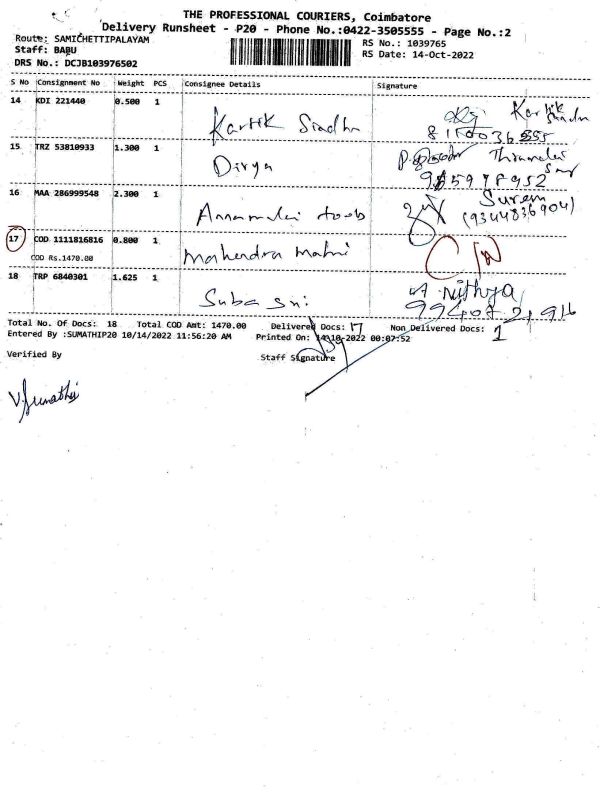 THE PROFESSIONAL COURIERS, Coimbatore
Delivery Runsheet - P20 - Phone No.:0422-3505555 - Page No.:2
Route: SAMICHETTIPALAYAM
RS No.: 1039765
Staff: BABU
RS Date: 14-Oct-2022
DRS No.: DCJB103976502
S No Consignment No Weight PCS Consignee Details Signature
14 KDI 221440 0.500 1 Kartik Sindhu Kartik
15 TRZ 53810933 1.300 1 Divya
16 MAA 286999548 2.300 1 Annamalai Suren
(9344836904)
17 COD 1111816816 0.800 1 Mahendra
COD Rs.1470.00
18 TRP 6840301 1.625 1 Suba Sri Nithya
Total No. Of Docs: 18 Total COD Amt: 1470.00 Delivered Docs: 17 Non Delivered Docs: 1
Entered By :SUMATHIP20 10/14/2022 11:56:20 AM Printed On: 14-10-2022 00:07:52
Verified By Staff Signature
V. Sumathi